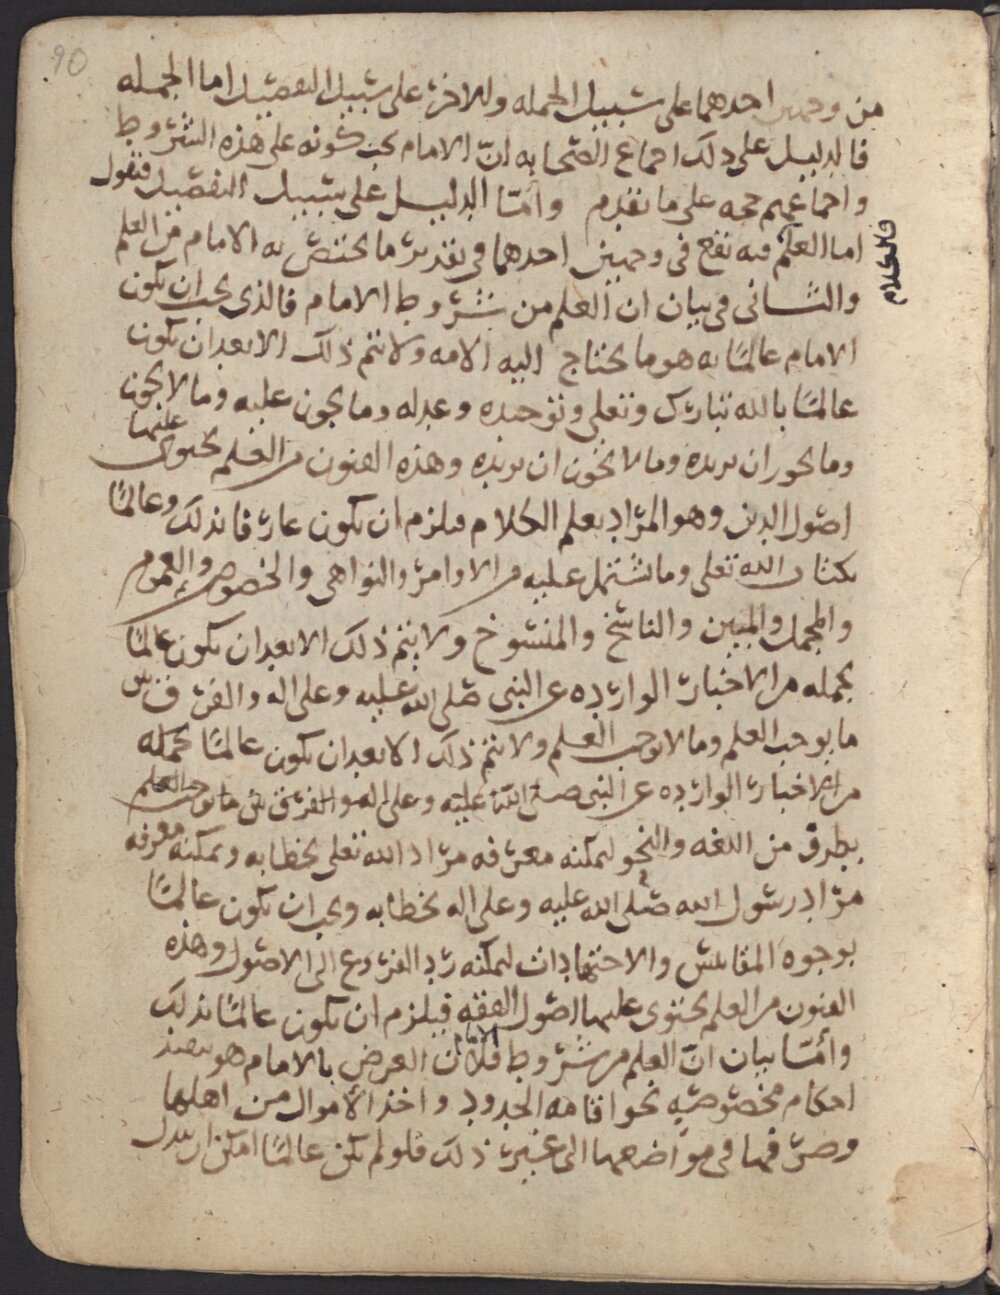 90
من وجهين احدهما على سبيل الجمله وللاخر على سبيل التفصيل اما الجمله
فالدليل على ذلك اجماع الصحابه انّ الامام يجب كونه على هذه الشروط
واجماعهم حجه على ما تقدم وامّا الدليل على سبيل التفصيل فنقول
اما العلم فيه نقع فى وجهين احدهما فى تقدير ما يختص به الامام من العلم
فالكلام
والثانى فى بيان ان العلم من شروط الامام فالذى يجب ان يكون
الامام عالمًا به هو ما يحتاج اليه الامه ولا يتم ذلك الا بعد ان يكون
عالمًا بالله تبارك وتعلى وتوحيده وعدله وما يجوز عليه وما لا يجوز
وما يجوز ان يريده وما لا يجوز ان يريده وهذه الفنون من العلم يحتوى عليها
اصول الدين وهو المراد بعلم الكلام فيلزم ان يكون عارفا بذلك وعالمًا
بكتاب الله تعلى وما يشتمل عليه من الاوامر والنواهى والخصوص والعموم
والمجمل والمبين والناسخ والمنسوخ ولا يتم ذلك الا بعد ان يكون عالمًا
بجمله من الاخبار الوارده عن النبى صلى الله عليه وعلى اله والفرق بين
ما يوجب العلم وما لا يوجب العلم ولا يتم ذلك الا بعد ان يكون عالمًا بجمله
من الاخبار الوارده عن النبى صلى الله عليه وعلى اله والفرق بين ما يوجب العلم
بطرف من اللغه والنحو ليمكنه معرفه مراد الله تعلى بخطابه ويمكنه معرفه
مراد رسول الله صلى الله عليه وعلى اله بخطابه ويجب ان يكون عالمًا
بوجوه المقاييس والاجتهادات ليمكنه رد الفروع الى الاصول وهذه
الفنون من العلم يحتوى عليها اصول الفقه فيلزم ان يكون عالمًا بذلك
وأمّا بيان انّ العلم من شروط الامام فلان الغرض بالامام هو تنفيذ
احكام مخصوصه نحو اقامه الحدود واخذ الأموال من اهلها
وصرفها فى مواضعها الى غير ذلك فلو لم يكن عالمًا امكن ان يبدل